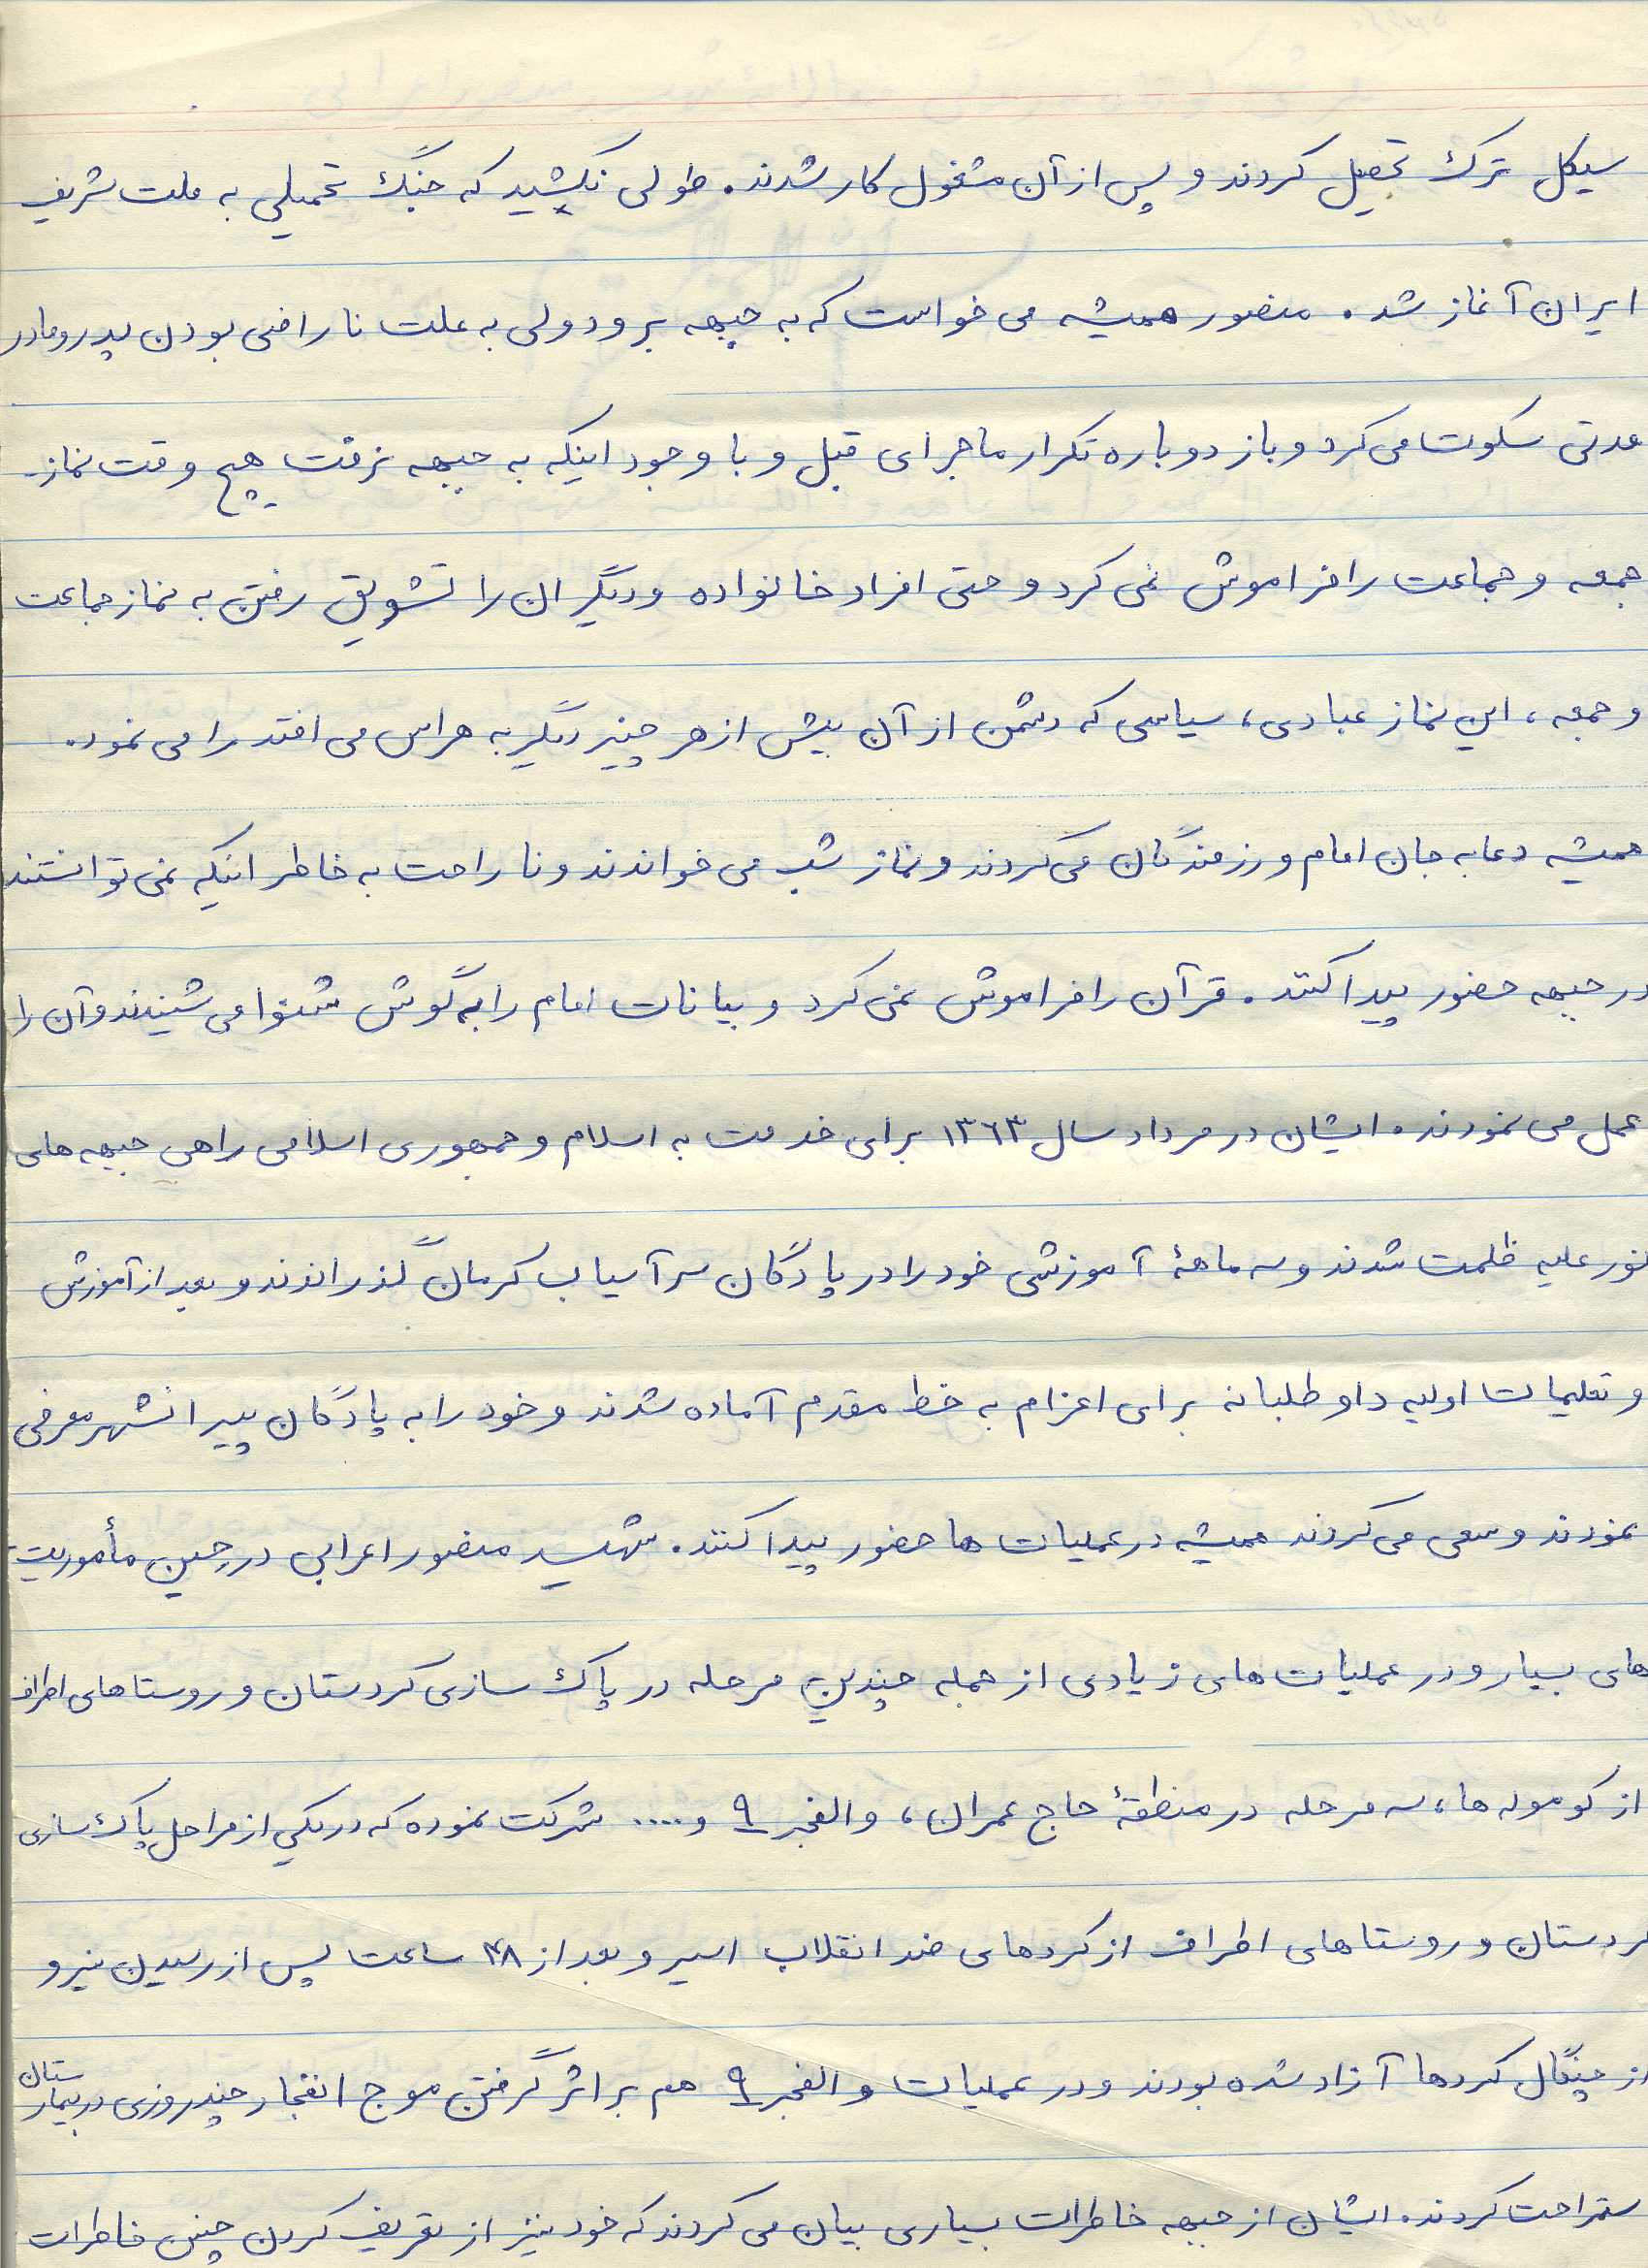 سیکل ترک تحصیل کردند و پس از آن مشغول کار شدند. طولی نکشید که جنگ تحمیلی به ملت شریف
ایران آغاز شد. منصور همیشه می خواست که به جبهه برود ولی به علت ناراضی بودن پدر و مادر
مدتی سکوت می کرد و باز دوباره تکرار ماجرای قبل و با وجود اینکه به جبهه نرفت هیچ وقت نماز-
جمعه و جماعت را فراموش نمی کرد و حتی افراد خانواده و دیگران را تشویق رفتن به نماز جماعت
و جمعه، این نماز عبادی، سیاسی که دشمن از آن بیش از هر چیز دیگر به هراس می افتد را می نمود.
همیشه دعا به جان امام و رزمندگان می کردند و نماز شب می خواندند و ناراحت به خاطر اینکه نمی توانستند
در جبهه حضور پیدا کنند. قرآن را فراموش نمی کرد و بیانات امام را به گوش شنوا می شنیدند و آن را
عمل می نمودند. ایشان در مرداد سال ۱۳۶۳ برای خدمت به اسلام و جمهوری اسلامی راهی جبهه های
نور علیه ظلمت شدند و سه ماههٔ آموزشی خود را در پادگان سرآسیاب کرمان گذراندند و بعد از آموزش
و تعلیمات اولیه داوطلبانه برای اعزام به خط مقدم آماده شدند و خود را به پادگان پیرانشهر معرفی
نمودند و سعی می کردند همیشه در عملیات ها حضور پیدا کنند. شهید منصور اعرابی در حین مأموریت-
های بسیار و در عملیات های زیادی از جمله چندین مرحله در پاک سازی کردستان و روستاهای اطراف
از کوموله ها، سه مرحله در منطقهٔ حاج عمران، والفجر ۹ و .... شرکت نموده که در یکی از مراحل پاک سازی
کردستان و روستاهای اطراف از کردهای ضد انقلاب اسیر و بعد از ۴۸ ساعت پس از رسیدن نیرو
از چنگال کردها آزاد شده بودند و در عملیات والفجر ۹ هم بر اثر گرفتن موج انفجار چند روزی در بیمارستان
ستراحت کردند. ایشان از جبهه خاطرات بسیاری بیان می کردند که خود نیز از تعریف کردن چنین خاطرات